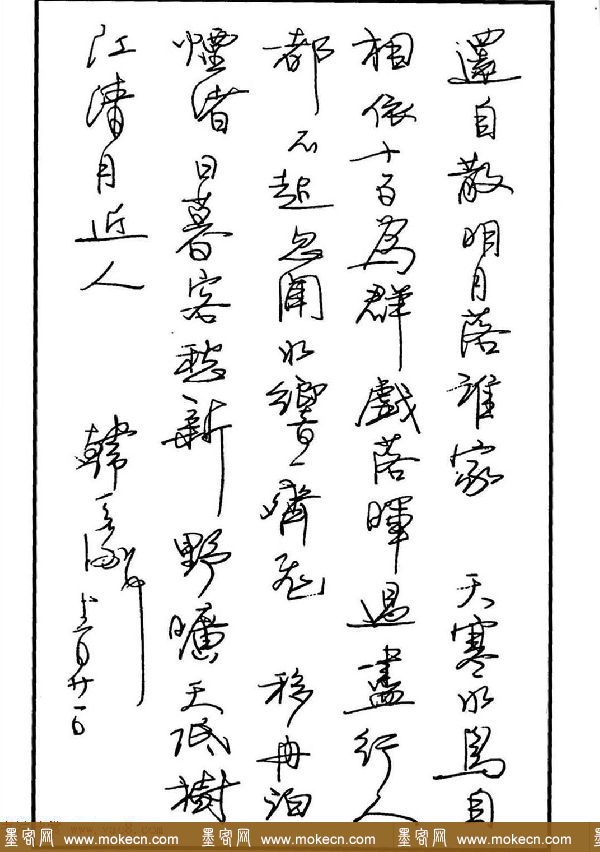 還自散明月落誰家 天寒水鳥自
相依十百為群戲落暉過盡行人
都不起忽聞水響一齊飛 移舟泊
煙渚日暮客愁新 野曠天低樹
江清月近人 韓
墨客网 www.mokecn.com 墨客网 www.mokecn.com 墨客网 www.mokecn.com